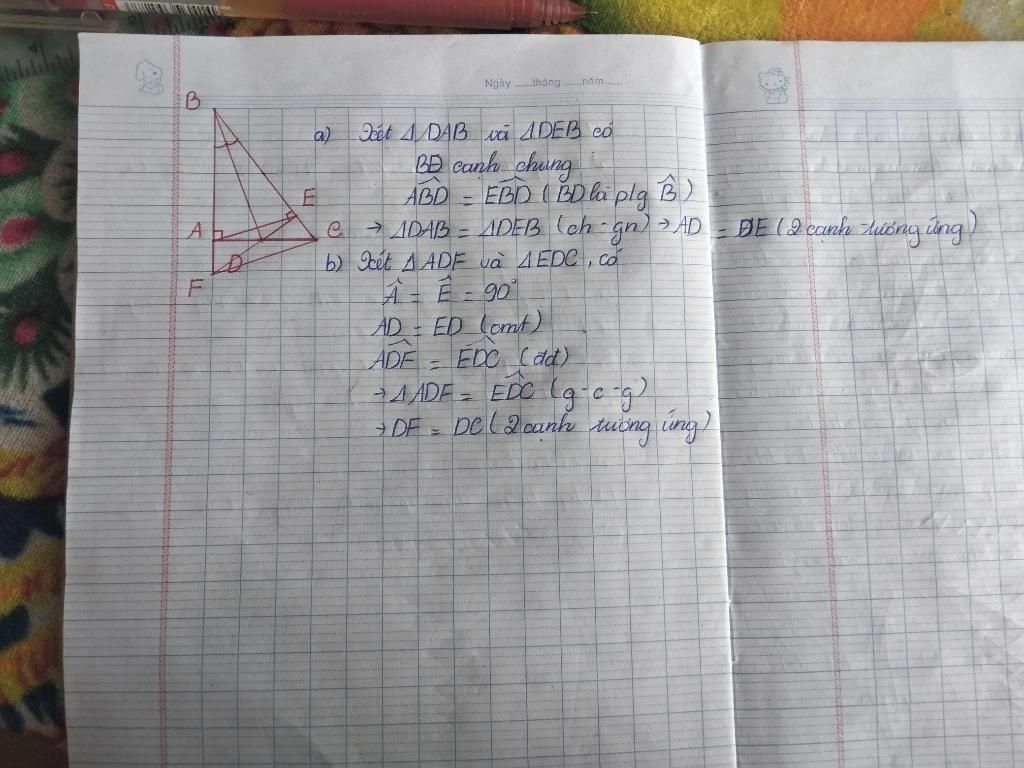 Ngày ......tháng ......năm......
B
E
A
C
D
F
a) Xét ΔDAB và ΔDEB có
BD cạnh chung
ABD̂ = EBD̂ (BD là p/g B̂)
→ ΔDAB = ΔDEB (ch - gn) → AD = DE (2 cạnh tương ứng)
b) Xét ΔADF và ΔEDC, có
Â = Ê = 90°
AD = ED (cmt)
ADF̂ = EDĈ (đđ)
→ ΔADF = EDĈ (g-c-g)
→ DF = DC (2 cạnh tương ứng)